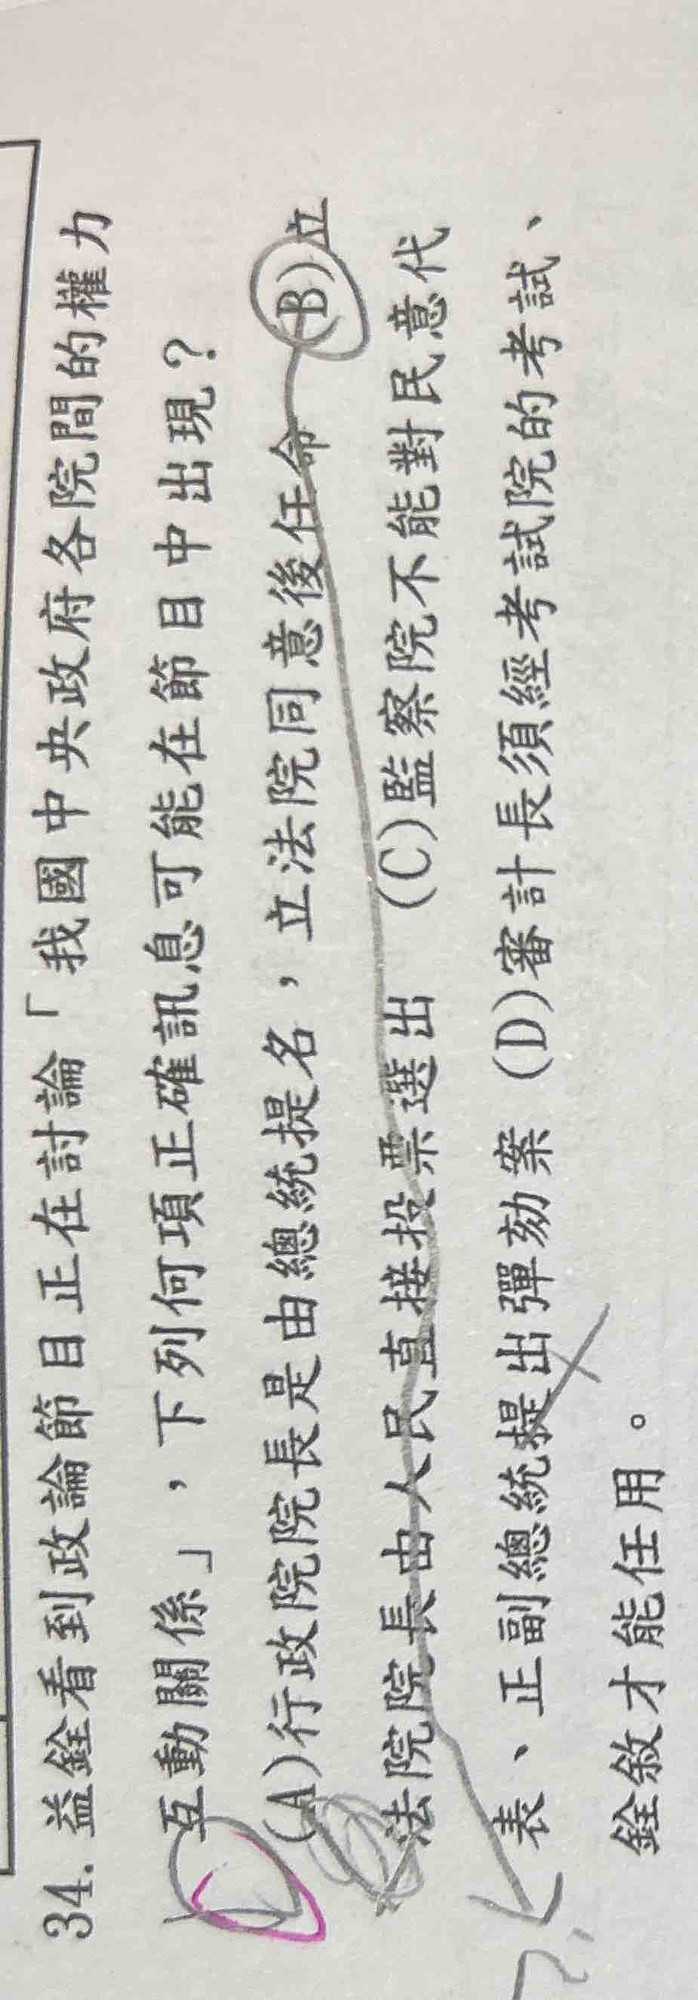 34. 益銓看到政論節目正在討論「我國中央政府各院間的權力
互動關係」，下列何項正確訊息可能在節目中出現？
(A)行政院院長是由總統提名，立法院同意後任命 (B)立
法院院長由人民直接投票選出 (C)監察院不能對民意代
表、正副總統提出彈劾案 (D)審計長須經考試院的考試、
銓敘才能任用。